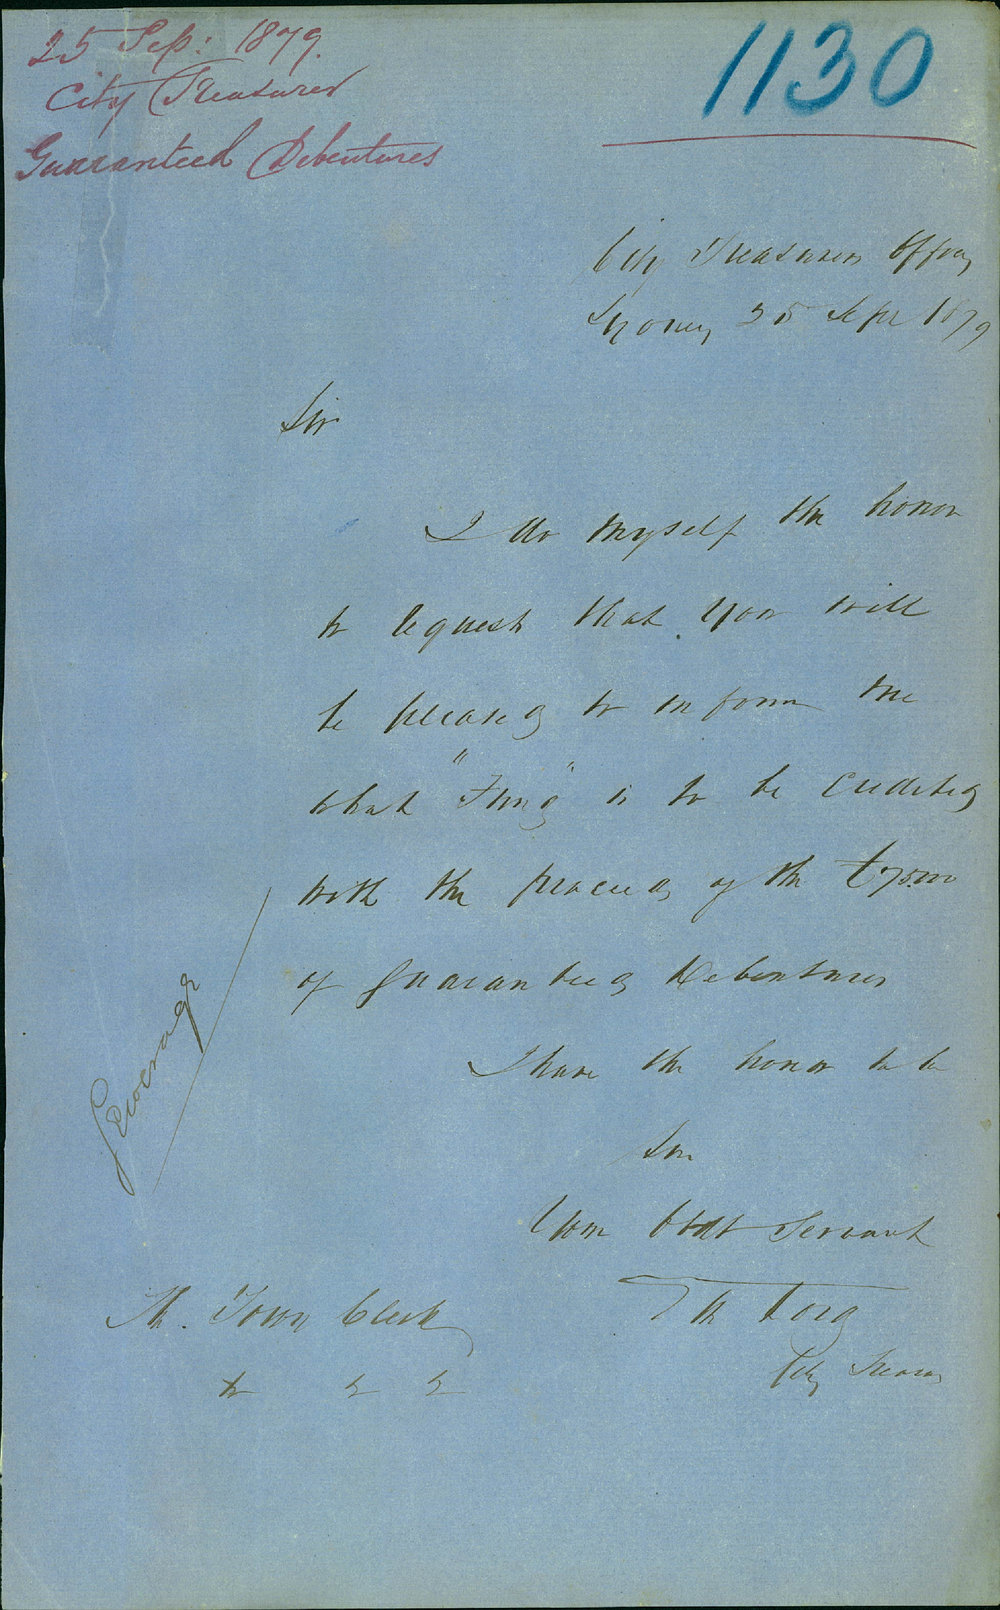 25 Sep: 1879.
City Treasurer
Guaranteed Debentures
1130
City Treasurers Office
Sydney 25 Sepr 1879
Sir
I do myself the honor
to request that you will
be pleased to inform me
what "Fund" is to be credited
with the proceeds of the £75000
of Guaranteed Debentures
I have the honor to be
Sir
Your Obdt Servant
City Treasr
Sewerage
The Town Clerk